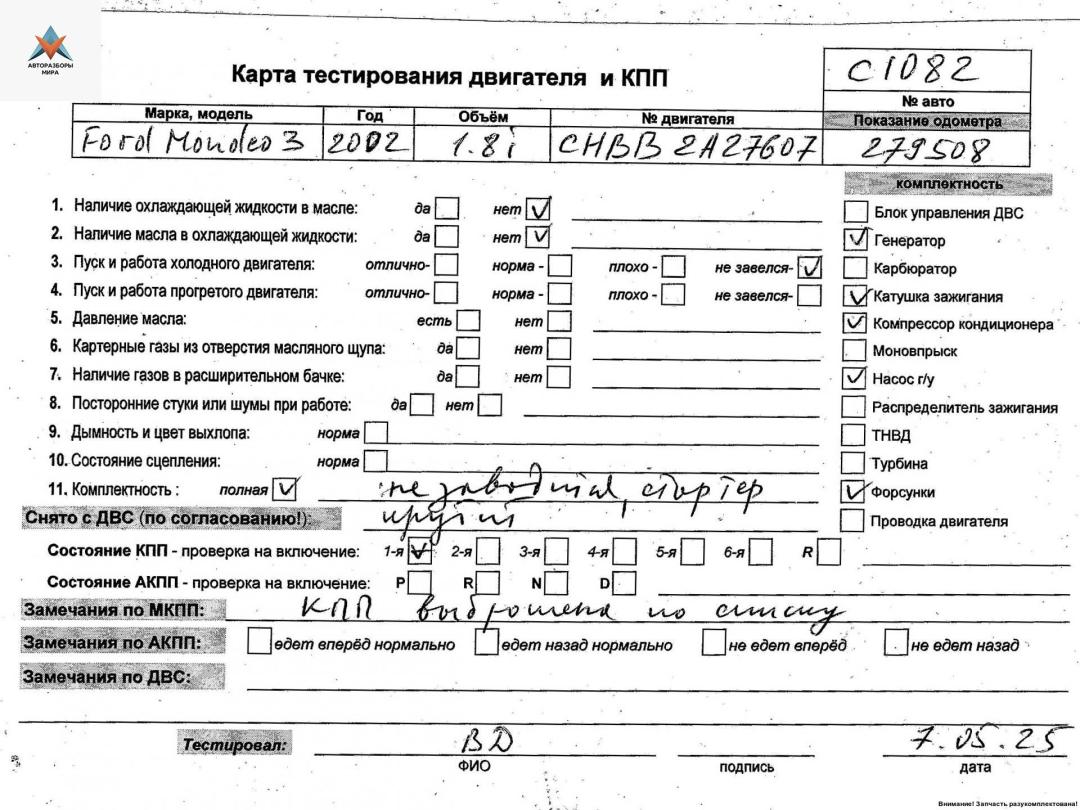 АВТОРАЗБОРЫ
МИРА
Карта тестирования двигателя и КПП
C1082
№ авто
Марка, модель Год Объём № двигателя Показание одометра
Ford Mondeo 3 2002 1.8i CHBB 2A27607 279508
комплектность
1. Наличие охлаждающей жидкости в масле: да нет
Блок управления ДВС
2. Наличие масла в охлаждающей жидкости: да нет
Генератор
3. Пуск и работа холодного двигателя: отлично- норма - плохо - не завелся-
Карбюратор
4. Пуск и работа прогретого двигателя: отлично- норма - плохо - не завелся-
Катушка зажигания
5. Давление масла: есть нет
Компрессор кондиционера
6. Картерные газы из отверстия масляного щупа: да нет
Моновпрыск
7. Наличие газов в расширительном бачке: да нет
Насос г/у
8. Посторонние стуки или шумы при работе: да нет
Распределитель зажигания
9. Дымность и цвет выхлопа: норма
ТНВД
10. Состояние сцепления: норма
Турбина
11. Комплектность : полная не заводится, стартер
Форсунки
Снято с ДВС (по согласованию!): крутит
Проводка двигателя
Состояние КПП - проверка на включение: 1-я 2-я 3-я 4-я 5-я 6-я R
Состояние АКПП - проверка на включение: P R N D
Замечания по МКПП: КПП выброшена по списку
Замечания по АКПП: едет вперёд нормально едет назад нормально не едет вперёд не едет назад
Замечания по ДВС:
Тестировал: ВД 7.05.25
ФИО подпись дата
Внимание! Запчасть разукомплектована!